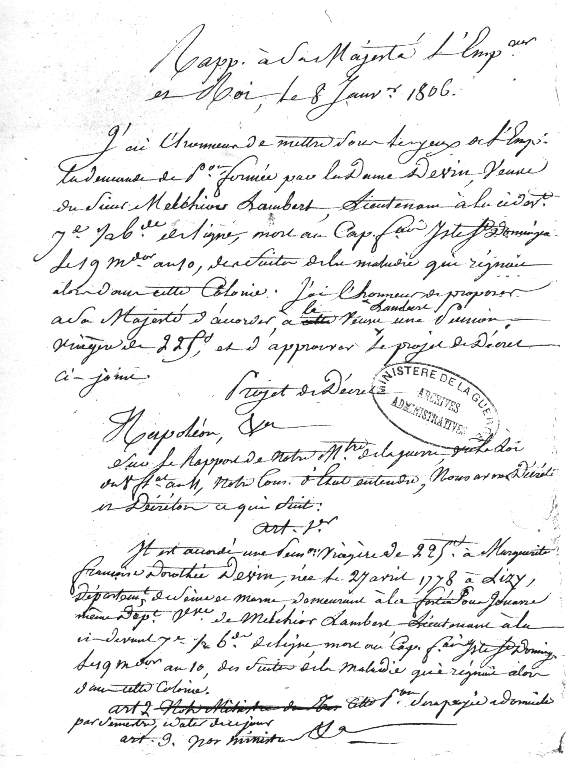 Rapp. à Sa Majesté L'Emp.eur
et Roi, le 8 Janv.r 1806.
J'ai l'honneur de mettre sous les yeux de l'Emp.r
la demande de P.on formée par la Dame Devin, Veuve
du Sieur Melchior Lambert, Lieutenant à la ci dev.t
7.e 1/2 b.de de ligne, mort au Cap. f.ais Isle St Domingue
le 19 m.dor an 10, des suites de la maladie qui régnait
alors dans cette Colonie. J'ai l'honneur de proposer
a Sa Majesté d'accorder, à cette la Veuve Lambert une Pension
viagère de 225 f, et d'approuver le projet de Décret
ci-joint.
Projet de Décret
MINISTERE DE LA GUERRE
ARCHIVES
ADMINISTRATIVES
Napoléon, &a
Sur le Rapport de notre M.tre de la guerre, vu la Loi
du 8 f.al an 11, notre Cons. d'Etat entendu, Nous avons Décrété
et Décrétons ce qui suit:
art. 1.er
Il est accordé une Pension viagère de 225 f à Marguerite
françoise Dorothée Devin, née le 27 avril 1778 à Lizy,
Département de Seine et Marne demeurant à la ferté Sous Jouarre
même dép.t V.ve de Melchior Lambert Lieutenant à la
ci-devant 7.e 1/2 b.de de ligne, mort au Cap. f.ais Isle St Doming.
le 19 m.dor an 10, des suites de la maladie qui régnait alors
dans cette Colonie.
art 2. Notre Ministre du Tres. Cette P.on sera payée a domicile
par semestre, à dater de ce jour
art. 3. nos ministres &a